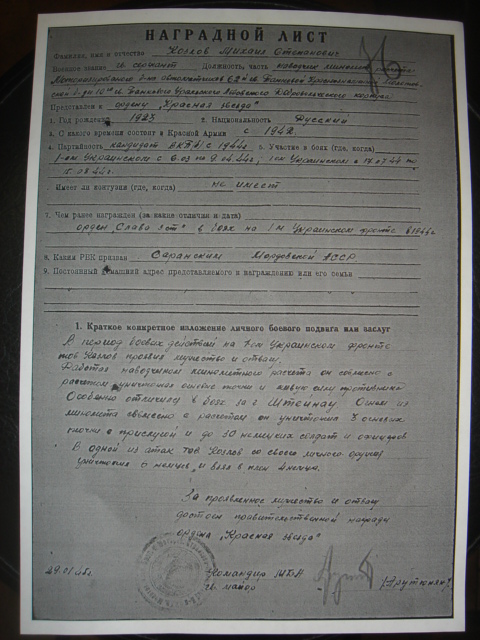 НАГРАДНОЙ ЛИСТ
Фамилия, имя и отчество Козлов Михаил Степанович
Военное звание гв. сержант Должность, часть наводчик миномета
Мотострелкового б-на автоматчиков 62 гв. Танковой
10 гв. Танкового Уральского Львовского Добровольческого корпуса
Представлен к ордену „Красная звезда"
1. Год рождения 1923 2. Национальность Русский
3. С какого времени состоит в Красной Армии с 1942
4. Партийность кандидат ВКП(б) с 1944г. 5. Участие в боях (где, когда)
1-ом Украинском с 6.03 по 9.04.44г, 1ом Украинском с 17.07.44 по
15.08.44г.
Имеет ли контузии (где, когда) не имеет
7. Чем ранее награжден (за какие отличия и дата)
орден „Слава 3 ст" в боях на 1м Украинском фронте
8. Каким РВК призван Саранским Мордовской АССР
9. Постоянный домашний адрес представляемого к награждению или его семьи
1. Краткое конкретное изложение личного боевого подвига или заслуг
В период боевых действий на 1-ом Украинском фронте
тов Козлов проявил мужество и отвагу.
Работая наводчиком минометного расчета он совместно с
расчетом уничтожал огневые точки и живую силу противника
Особенно отличился в боях за г Штейнау. Огнем из
миномета совместно с расчетом он уничтожил 3 огневых
точки с прислугой и до 30 немецких солдат и офицеров
В одной из атак тов Козлов со своего личного оружия
уничтожил 6 немцев, и взял в плен 4 немца.
За проявленное мужество и отвагу
достоин правительственной награды
ордена „Красная звезда"
29.01.45г. Командир МБА
гв. майор /Арутюнян/